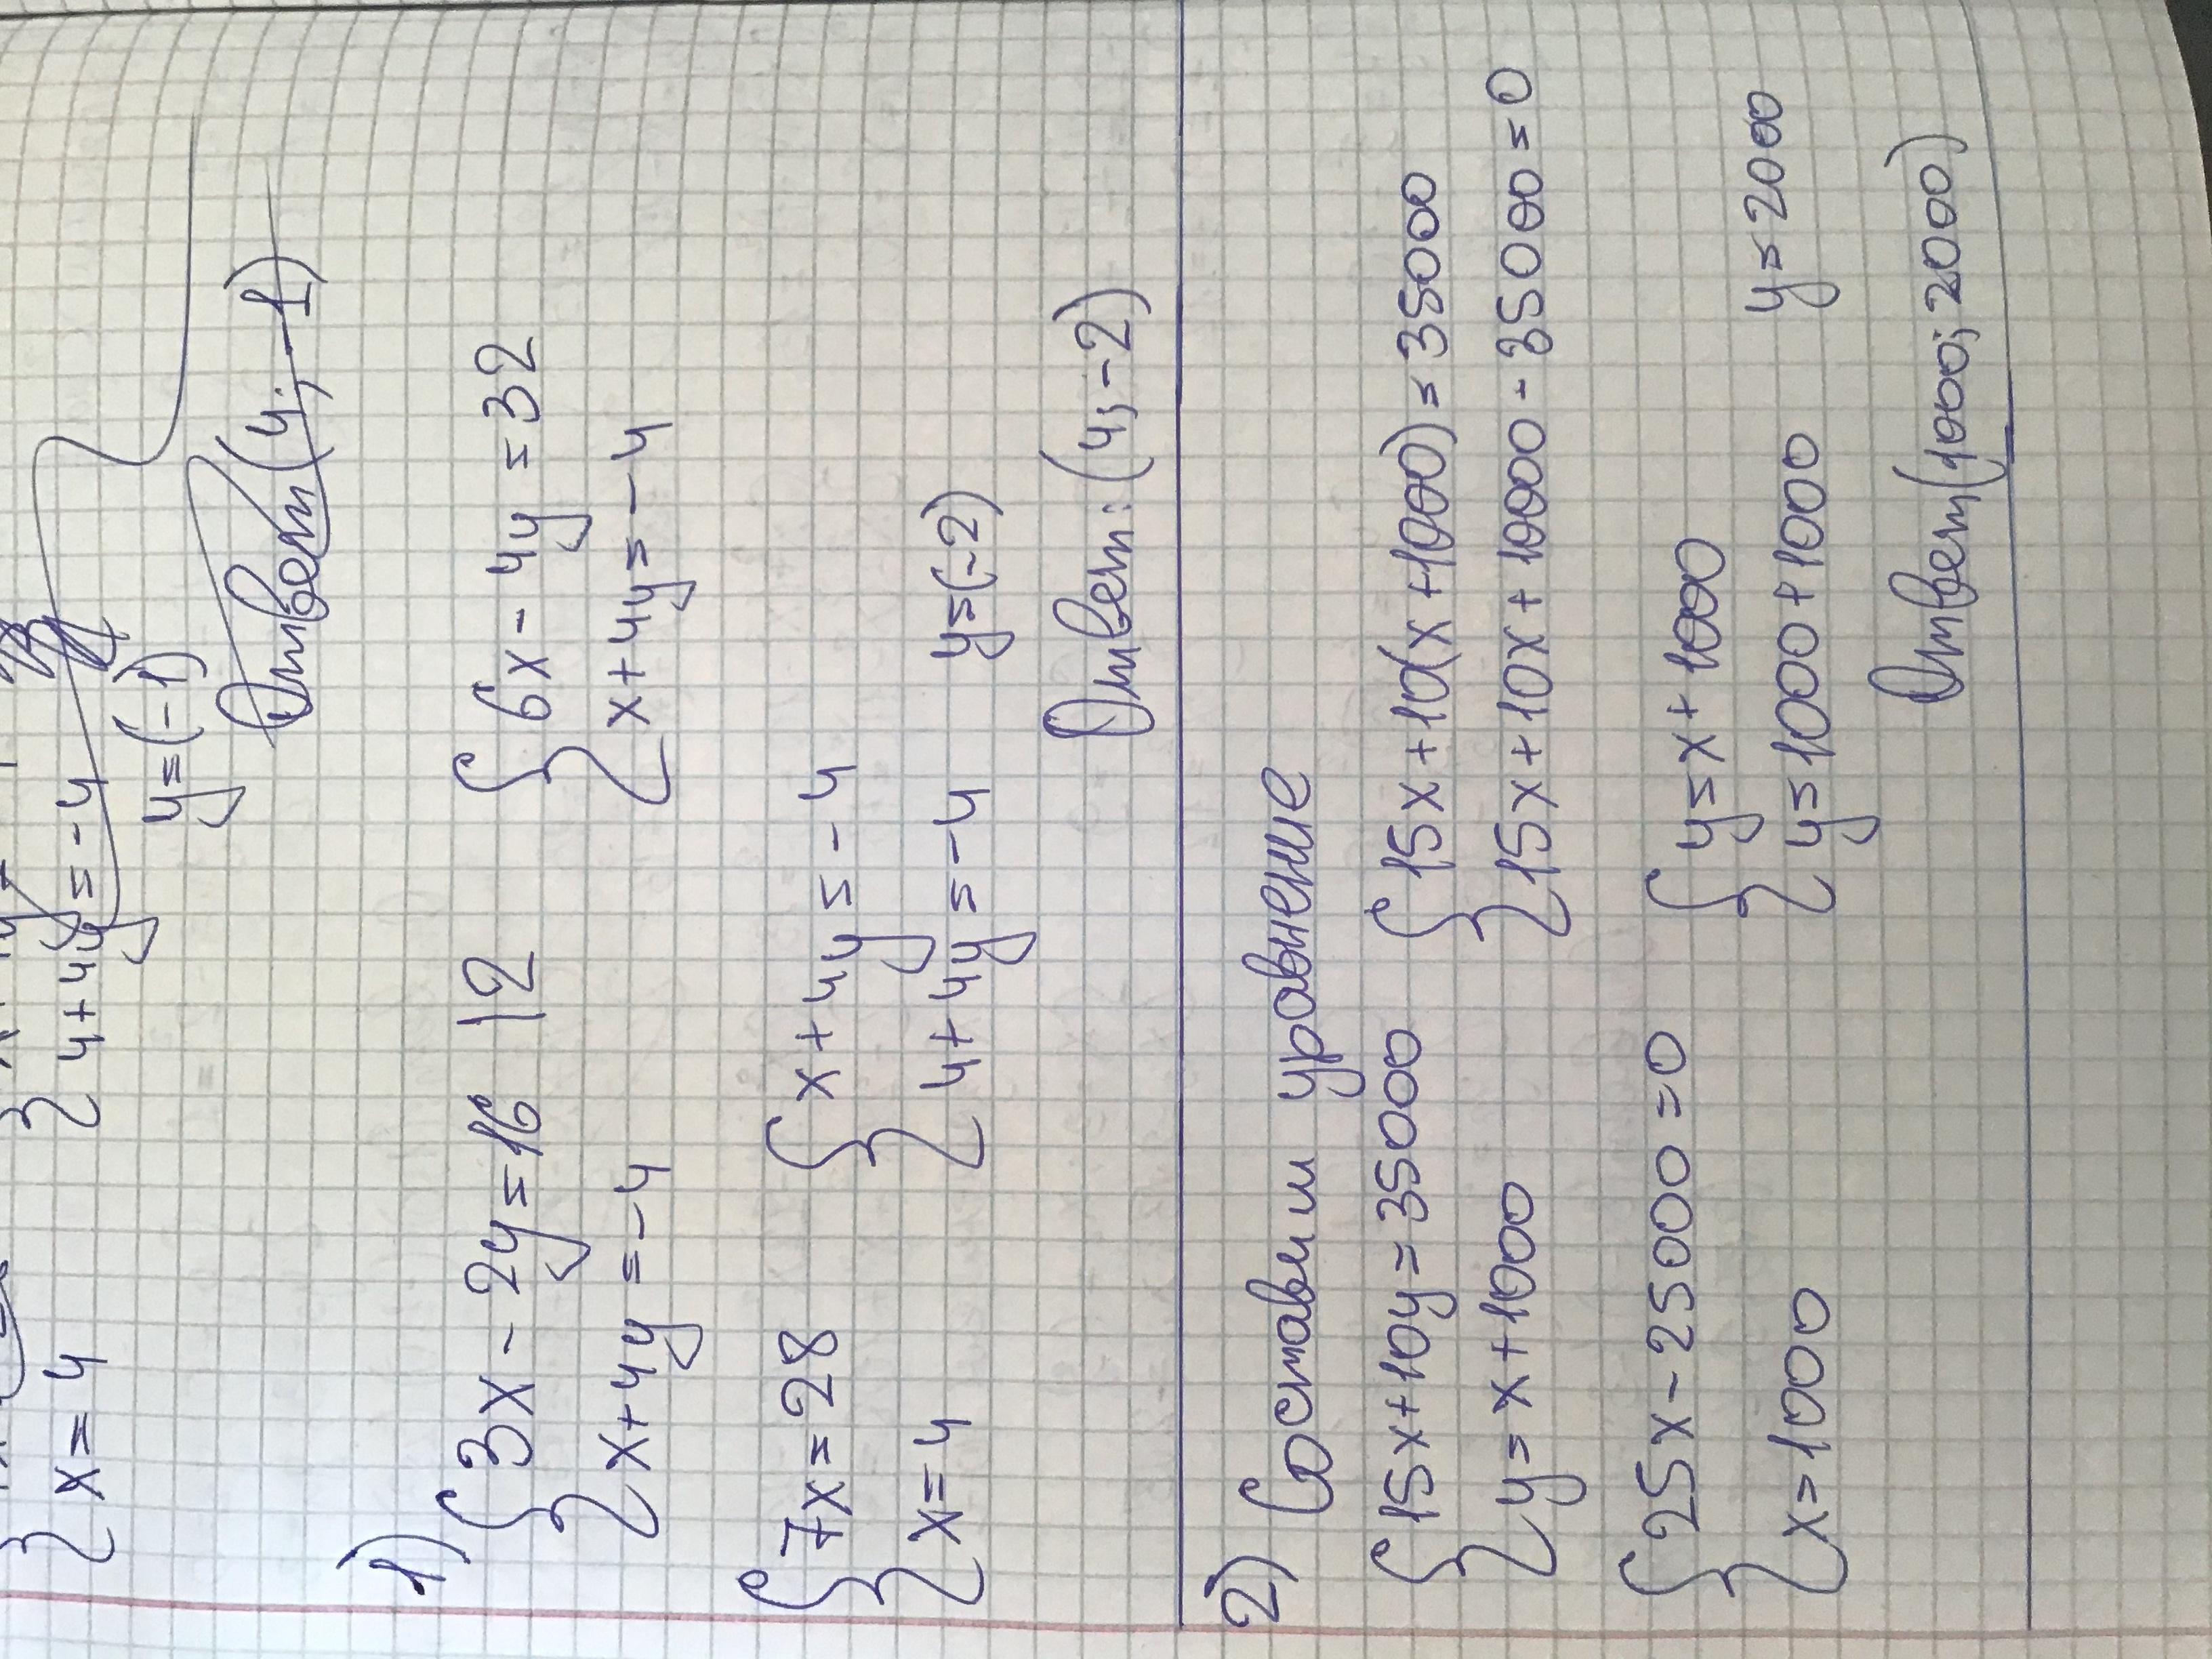 x=4
4+4y=-4
y=(-1)
Ответ(4;-1)
1) 3x-2y=16 |2 6x-4y=32
x+4y=-4 x+4y=-4
7x=28 x+4y=-4
x=4 4+4y=-4 y=(-2)
Ответ:(4;-2)
2) Составим уравнение
15x+10y=35000 15x+10(x+1000)=35000
y=x+1000 15x+10x+10000-35000=0
25x-25000=0 y=x+1000
x=1000 y=1000+1000 y=2000
Ответ(1000;2000)